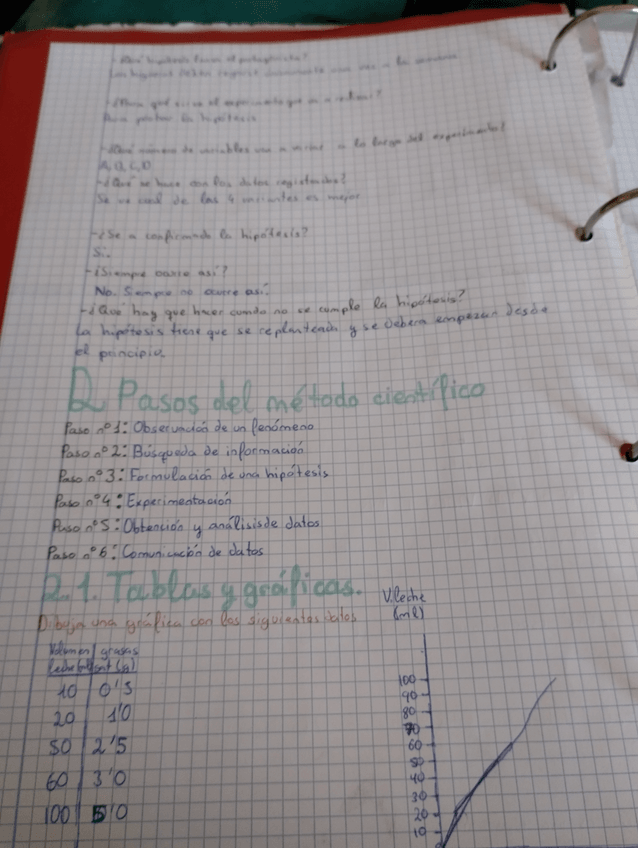 -¿Qué hipótesis hacen el protagonista?
Los higienis deben regarse solamente una vez a la semana
-¿Para qué sirve el experimento que va a realizar?
Para probar la hipótesis
-¿Qué número de variables van a variar a lo largo del experimento?
A, B, C, D
-¿Qué se hace con los datos registrados?
Se ve cual de las 4 variantes es mejor
-¿Se a confirmado la hipótesis?
Si.
-¿Siempre ocurre así?
No. Siempre no ocurre así.
-¿Qué hay que hacer cuando no se cumple la hipótesis?
La hipótesis tiene que se replanteada y se debera empezar desde
el principio.
2. Pasos del método científico
Paso nº1: Observación de un fenómeno
Paso nº2: Búsqueda de información
Paso nº3: Formulación de una hipótesis
Paso nº4: Experimentación
Paso nº5: Obtención y análisis de datos
Paso nº6: Comunicación de datos
2.1. Tablas y gráficas.
Dibuja una gráfica con los siguientes datos
Volumen grasas
leche (ml) cont (g)
10 0'5
20 1'0
50 2'5
60 3'0
100 5'0
V.leche
(ml)
100
90
80
70
60
50
40
30
20
10
0